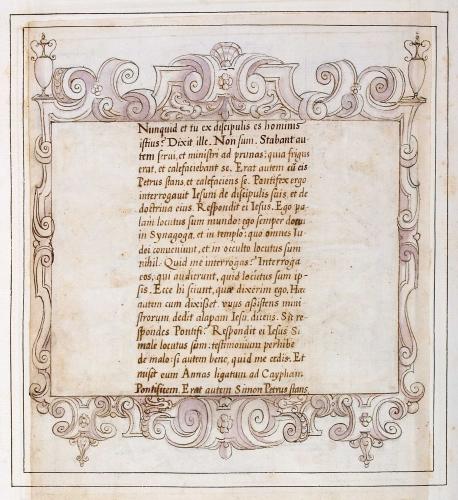 Nunquid et tu ex discipulis es hominis
istius? Dixit ille. Non sum. Stabant au
tem serui, et ministri ad prunas; quia frigus
erat, et calefaciebant se. Erat autem cũ eis
Petrus stans, et calefaciens se. Pontifex ergo
interrogauit Iesum de discipulis suis, et de
doctrina eius. Respondit ei Iesus. Ego pa
lam locutus sum mundo: ego semper docui
in Synagoga, et in templo: quo omnes Iu
dei conueniunt, et in occulto locutus sum
nihil. Quid me interrogas? Interroga
eos, qui audierunt, quid locutus sum ip
sis. Ecce hi sciunt, quæ dixerim ego. Hæc
autem cum dixißet, unus aßistens mini
strorum, dedit alapam Iesu, dicens. Sic re
spondes Pontifi? Respondit ei Iesus Si
male locutus sum: testimonium perhibe
de malo: si autem bene, quid me cedis. Et
misit eum Annas ligatum ad Caypham
Pontificem. Erat autem Simon Petrus stans,